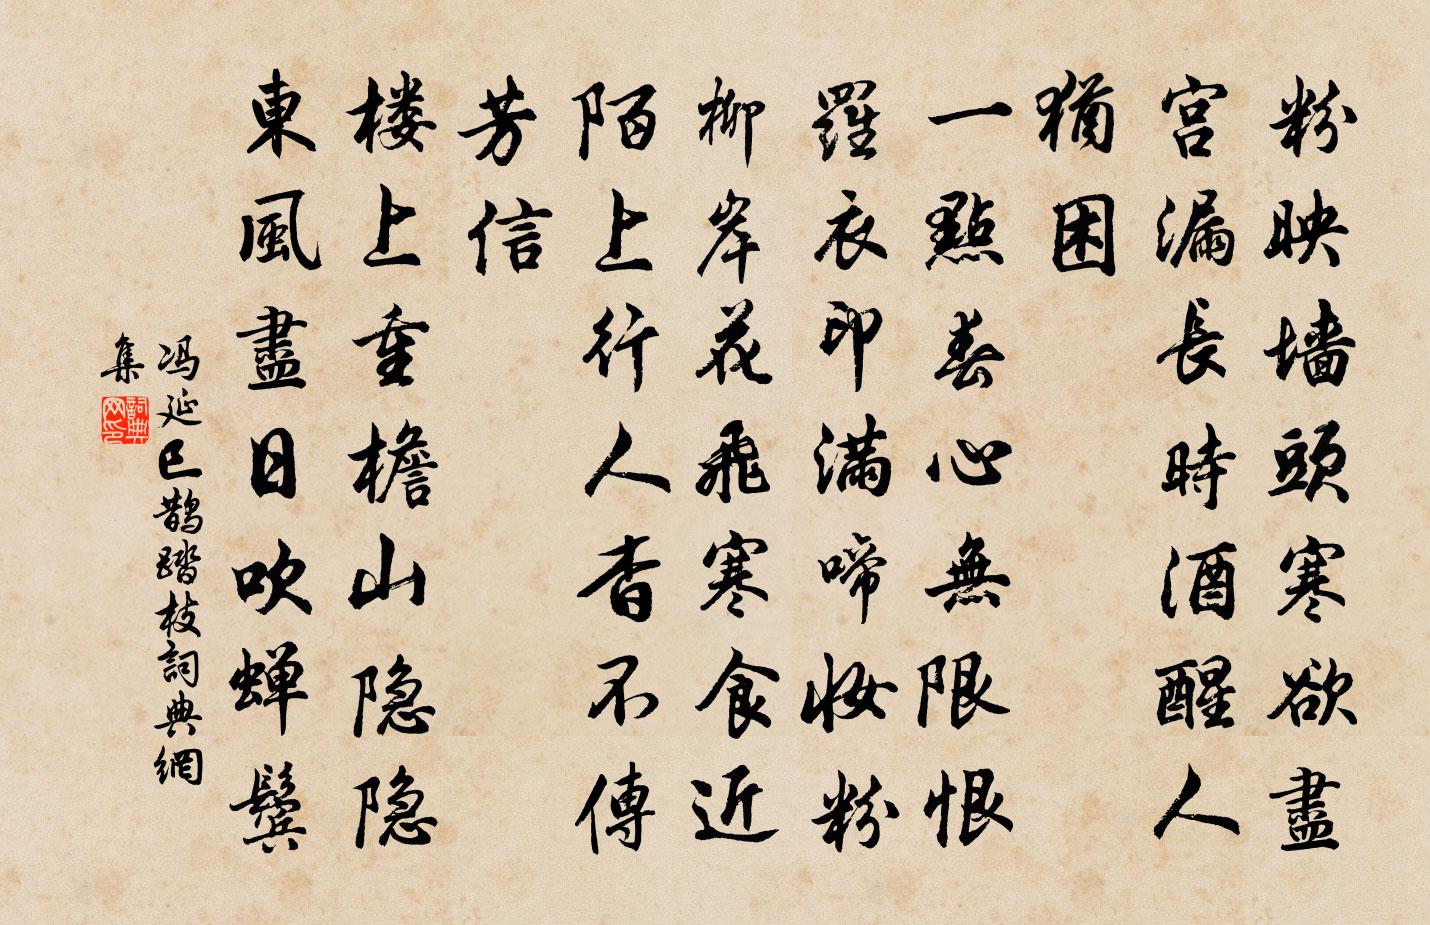 粉映墻頭寒欲盡
宮漏長時酒醒人
猶困
一點春心無限恨
羅衣印滿啼妝粉
柳岸花飛寒食近
陌上行人杳不傳
芳信
楼上重檐山隐隐
東風盡日吹蝉鬢
冯延巳鵲踏枝詞典網
集
詞典
网印